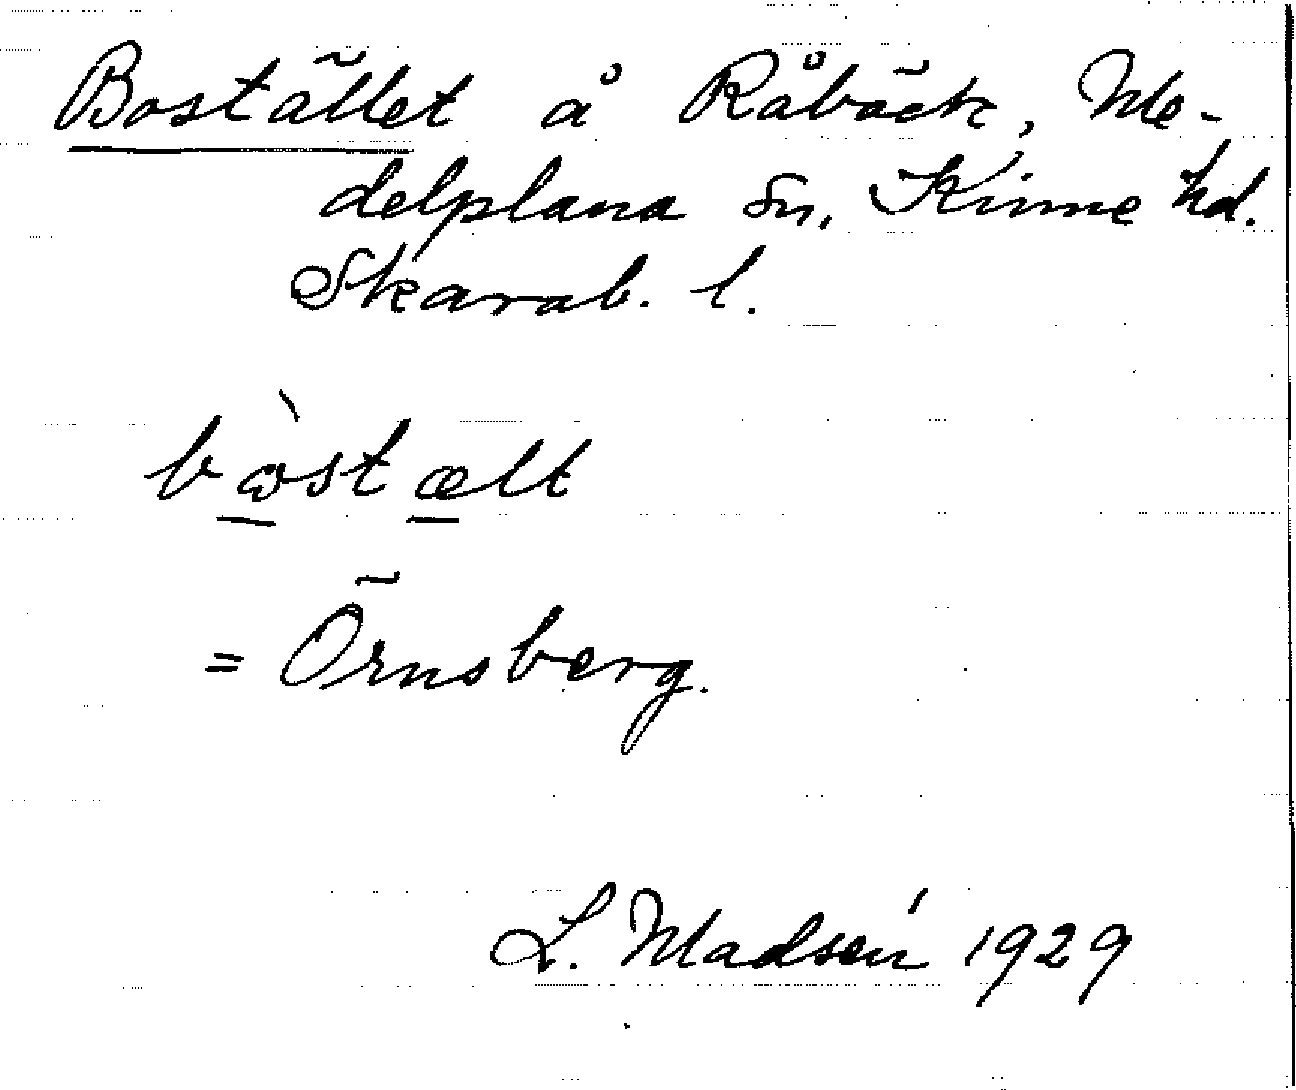 Bostället å Råbäck, Me-
delplana sn, Kinne hd.
Skarab. l.
bòstælt
= Örnsberg.
L. Madsén 1929